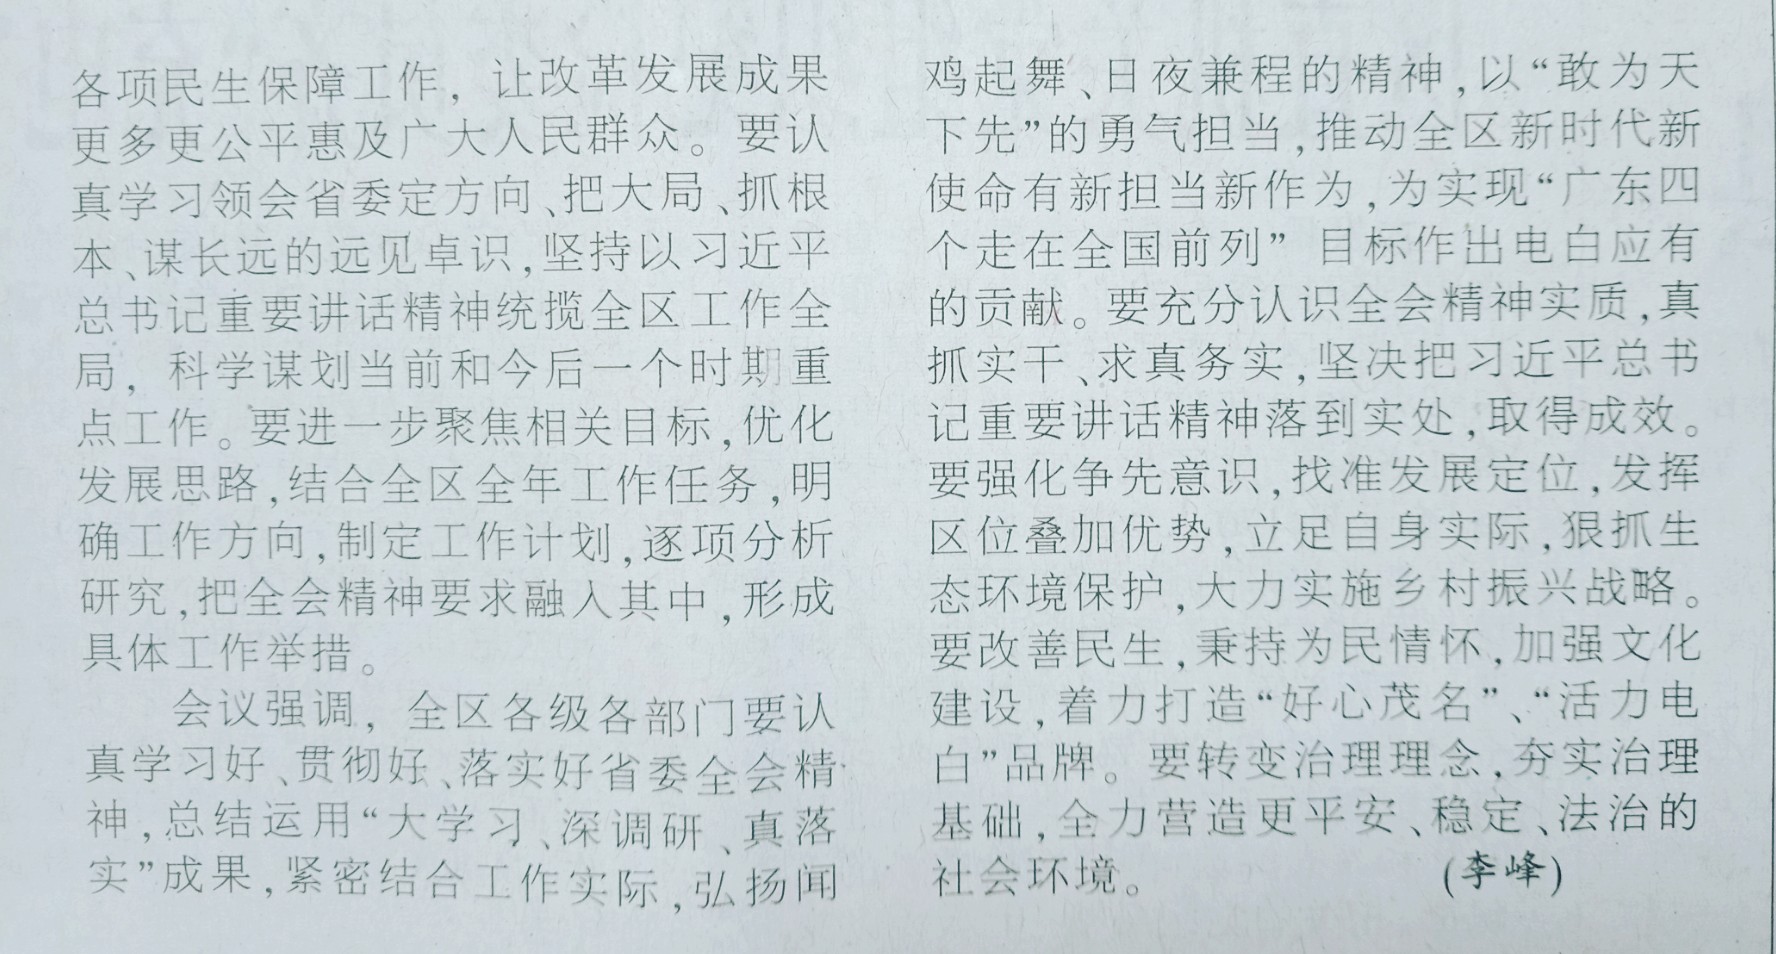 各项民生保障工作，让改革发展成果
更多更公平惠及广大人民群众。要认
真学习领会省委定方向、把大局、抓根
本、谋长远的远见卓识，坚持以习近平
总书记重要讲话精神统揽全区工作全
局，科学谋划当前和今后一个时期重
点工作。要进一步聚焦相关目标，优化
发展思路，结合全区全年工作任务，明
确工作方向，制定工作计划，逐项分析
研究，把全会精神要求融入其中，形成
具体工作举措。
会议强调，全区各级各部门要认
真学习好、贯彻好、落实好省委全会精
神，总结运用“大学习、深调研、真落
实”成果，紧密结合工作实际，弘扬闻
鸡起舞、日夜兼程的精神，以“敢为天
下先”的勇气担当，推动全区新时代新
使命有新担当新作为，为实现“广东四
个走在全国前列”目标作出电白应有
的贡献。要充分认识全会精神实质，真
抓实干、求真务实，坚决把习近平总书
记重要讲话精神落到实处，取得成效。
要强化争先意识，找准发展定位，发挥
区位叠加优势，立足自身实际，狠抓生
态环境保护，大力实施乡村振兴战略。
要改善民生，秉持为民情怀，加强文化
建设，着力打造“好心茂名”、“活力电
白”品牌。要转变治理理念，夯实治理
基础，全力营造更平安、稳定、法治的
社会环境。 （李峰）